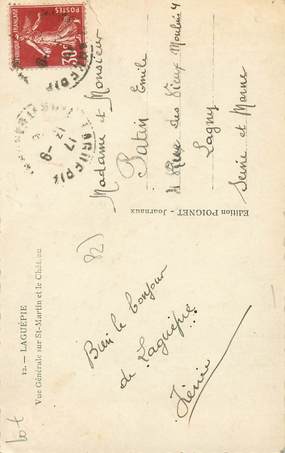 12. — LAGUÉPIE
Vue Générale sur St-Martin et le Château
Bien le bonjour
de Laguépie
Irénée
Edition POIGNET - Journaux
Madame et Monsieur
Patin Emile
4 Rue des Vieux Moulins 4
Lagny
Seine et Marne
REPUBLIQUE FRANÇAISE
POSTES
30c
LAGUEPIE
17 -9
(82)
lot